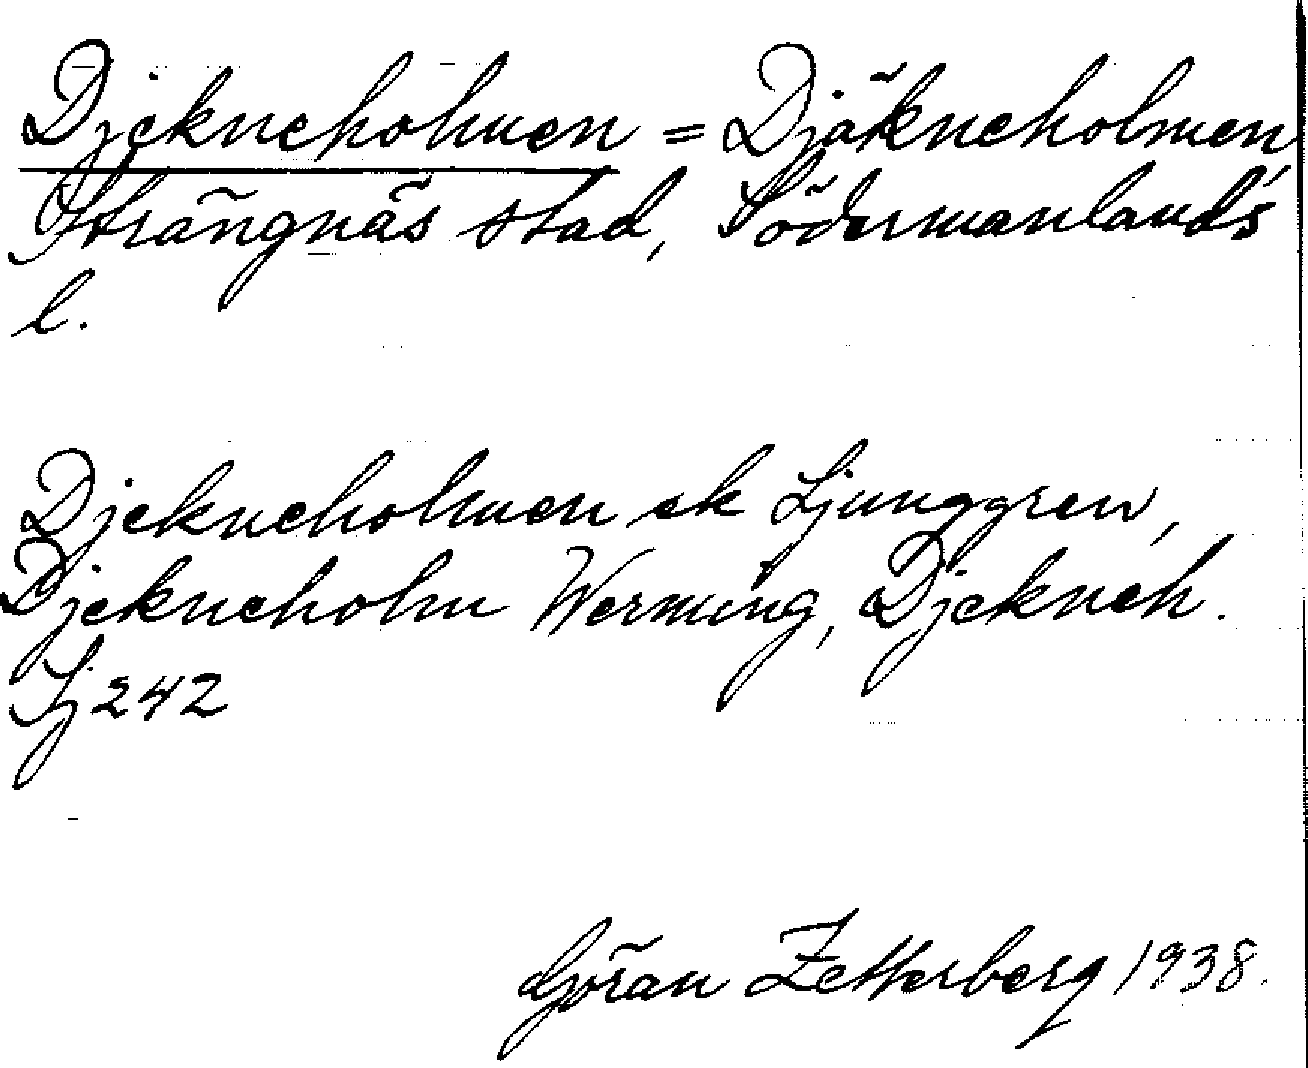 Djekneholmen = Djäkneholmen,
Strängnäs stad, Södermanlands
l.
Djekneholmen ek Ljunggren,
Djekneholm Werming, Djekneh.
Lj 242
Göran Zetterberg 1938.